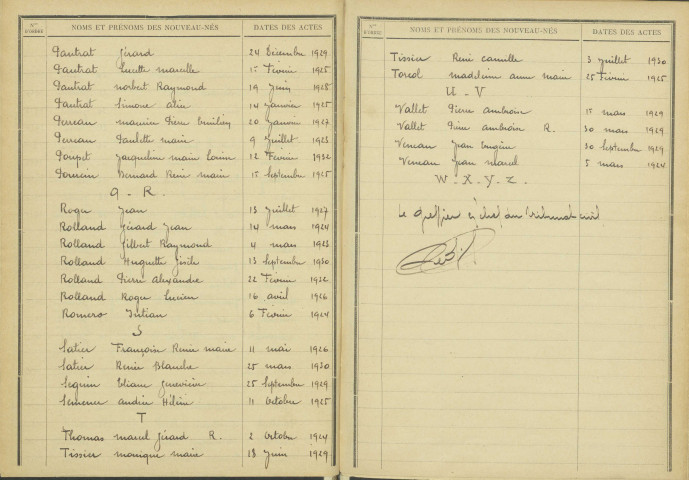 Nos D'ORDRE NOMS ET PRÉNOMS DES NOUVEAU-NÉS DATES DES ACTES
Pautrat Gérard 24 Décembre 1929
Pautrat Lucette marcelle 15 Février 1925
Pautrat norbert Raymond 19 juin 1928
Pautrat Simone 14 Janvier 1925
Perreau maurice Pierre Emilien 20 Janvier 1927
Perreau Paulette marie 9 Juillet 1923
Poupet Jacqueline marie Louise 12 Février 1932
Bernard René marie 15 Septembre 1925
Q - R.
Roger Jean 13 Juillet 1927
Rolland Gérard Jean 14 mars 1924
Rolland Gilbert Raymond 4 mars 1923
Rolland Huguette Gisèle 13 Septembre 1930
Rolland Pierre Alexandre 22 Février 1932
Rolland Roger Lucien 16 avril 1926
Romero Julian 6 Février 1924
S
Satier Françoise Renée marie 11 mai 1926
Satier Renée Blanche 25 mars 1930
Seguin Eliane Geneviève 25 Septembre 1929
Semence andrée Hélène 11 Octobre 1925
T
Thomas marcel Gérard R. 2 Octobre 1924
Tissier monique marie 18 Juin 1929
Nos D'ORDRE NOMS ET PRÉNOMS DES NOUVEAU-NÉS DATES DES ACTES
Tissier René camille 3 Juillet 1930
madeleine anne marie 25 Février 1925
U - V
Vallet Pierre ambroise 15 mars 1929
Vallet Pierre ambroise R. 30 mars 1929
Veneau Jean Eugène 30 Septembre 1929
Veneau Jean marcel 5 mars 1924
W - X - y - Z -
Le Greffier en chef du tribunal civil